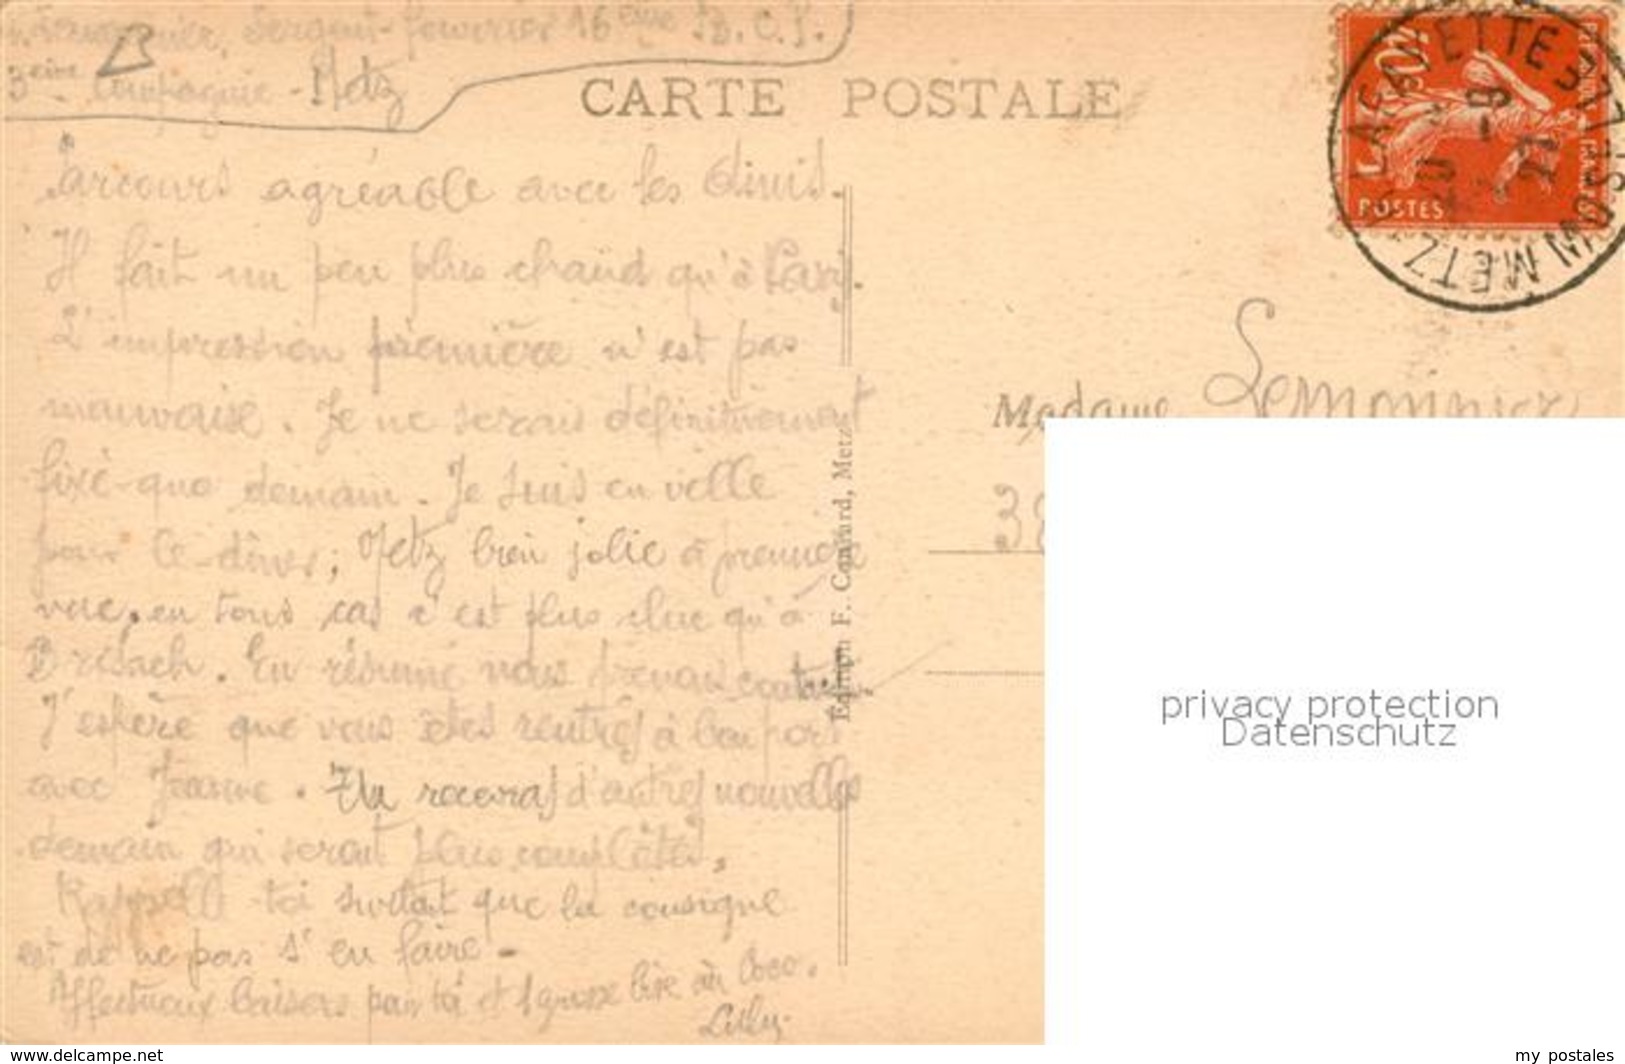 sergent-fourrier 16ème B.C.P.
3ème Compagnie - Metz
CARTE POSTALE
Parcours agréable avec les
Il fait un peu plus chaud qu'à Paris.
L'impression première n'est pas
mauvaise. Je ne serais définitivement
fixé que demain. Je suis en ville
pour le dîner; Metz bien jolie à première
vue, en tous cas c'est plus chic qu'à
Brisach. En résumé nous prenons contact.
J'espère que vous êtes rentrés à bon port
avec Jeanne. Tu recevras d'autres nouvelles
demain qui seront plus complètes.
Rappelle toi surtout que la consigne
est de ne pas s'en faire -
Affectueux baisers pour toi et 1 grosse bise au Coco.
Edition F. Conrard, Metz
POSTES
METZ LAFAYETTE MOSELLE
20
9
27
Madame Lemonnier
38
privacy protection
Datenschutz
www.delcampe.net
my_postales